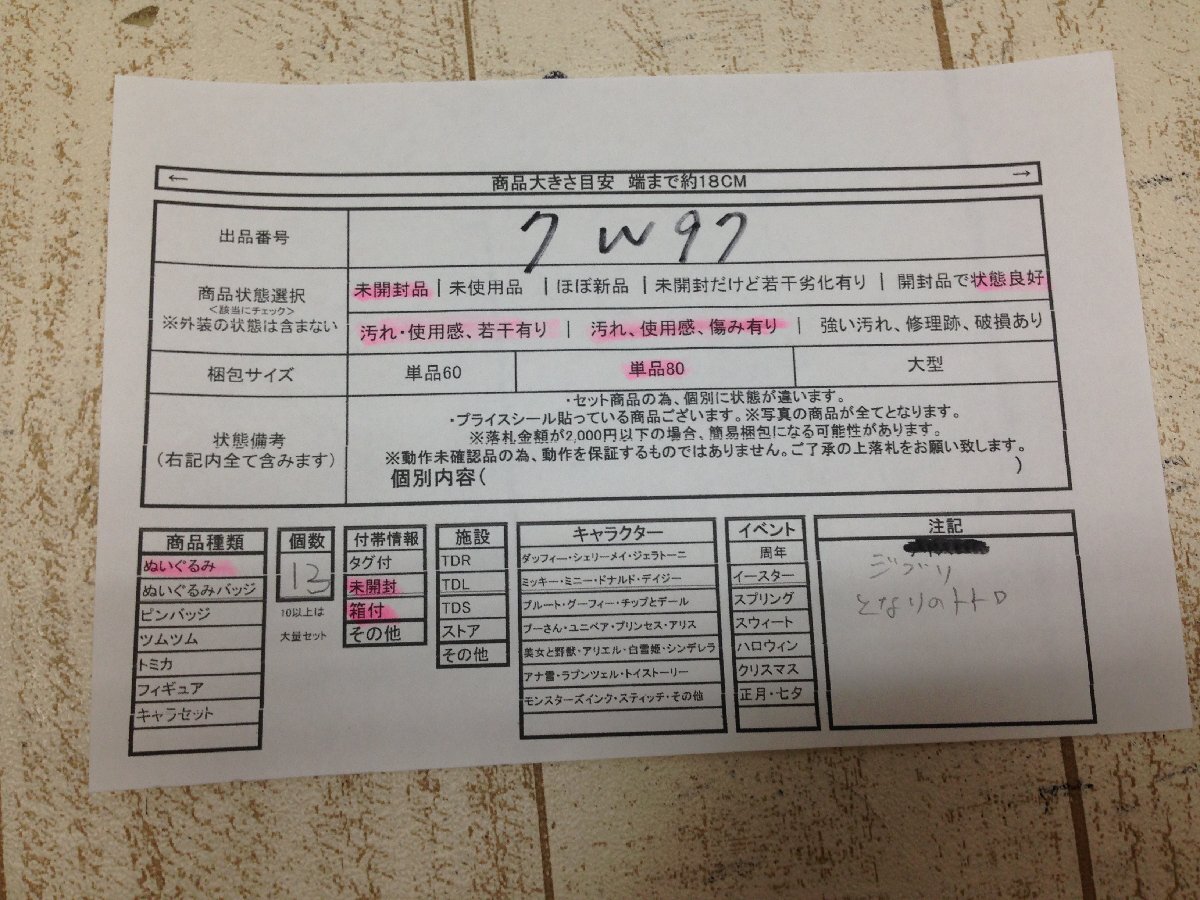 ← 商品大きさ目安 端まで約18CM →
出品番号 7W97
商品状態選択
<該当にチェック>
※外装の状態は含まない
未開封品 | 未使用品 | ほぼ新品 | 未開封だけど若干劣化有り | 開封品で状態良好
汚れ・使用感、若干有り | 汚れ、使用感、傷み有り | 強い汚れ、修理跡、破損あり
梱包サイズ 単品60 単品80 大型
状態備考
(右記内全て含みます)
・セット商品の為、個別に状態が違います。
・プライスシール貼っている商品ございます。※写真の商品が全てとなります。
※落札金額が2,000円以下の場合、簡易梱包になる可能性があります。
※動作未確認品の為、動作を保証するものではありません。ご了承の上落札をお願い致します。
個別内容( )
商品種類
ぬいぐるみ
ぬいぐるみバッジ
ピンバッジ
ツムツム
トミカ
フィギュア
キャラセット
個数
13
10以上は
大量セット
付帯情報
タグ付
未開封
箱付
その他
施設
TDR
TDL
TDS
ストア
その他
キャラクター
ダッフィー・シェリーメイ・ジェラトーニ
ミッキー・ミニー・ドナルド・デイジー
プルート・グーフィー・チップとデール
プーさん・ユニベア・プリンセス・アリス
美女と野獣・アリエル・白雪姫・シンデレラ
アナ雪・ラプンツェル・トイストーリー
モンスターズインク・スティッチ・その他
イベント
周年
イースター
スプリング
スウィート
ハロウィン
クリスマス
正月・七夕
注記
ジブリ
となりのトトロ